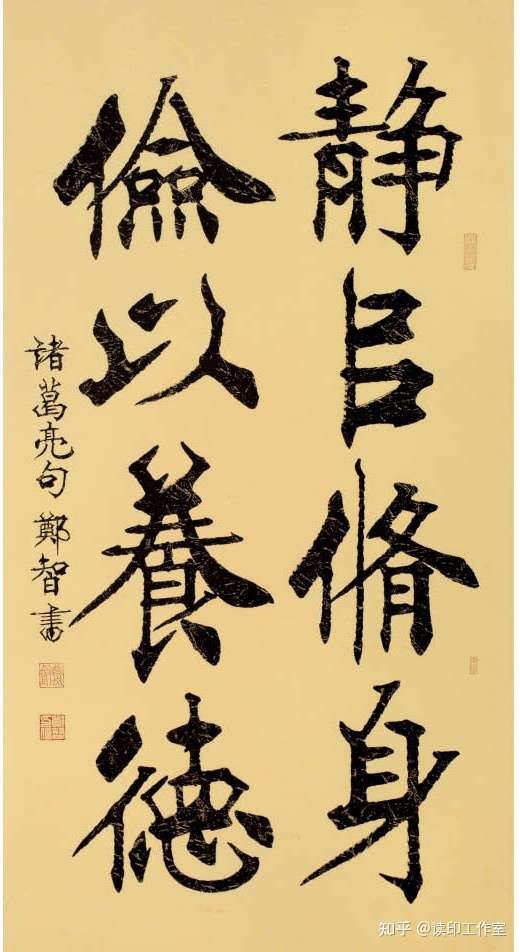 静㠯脩身
儉以養徳
諸葛亮句 鄭智書
知乎 @读印工作室